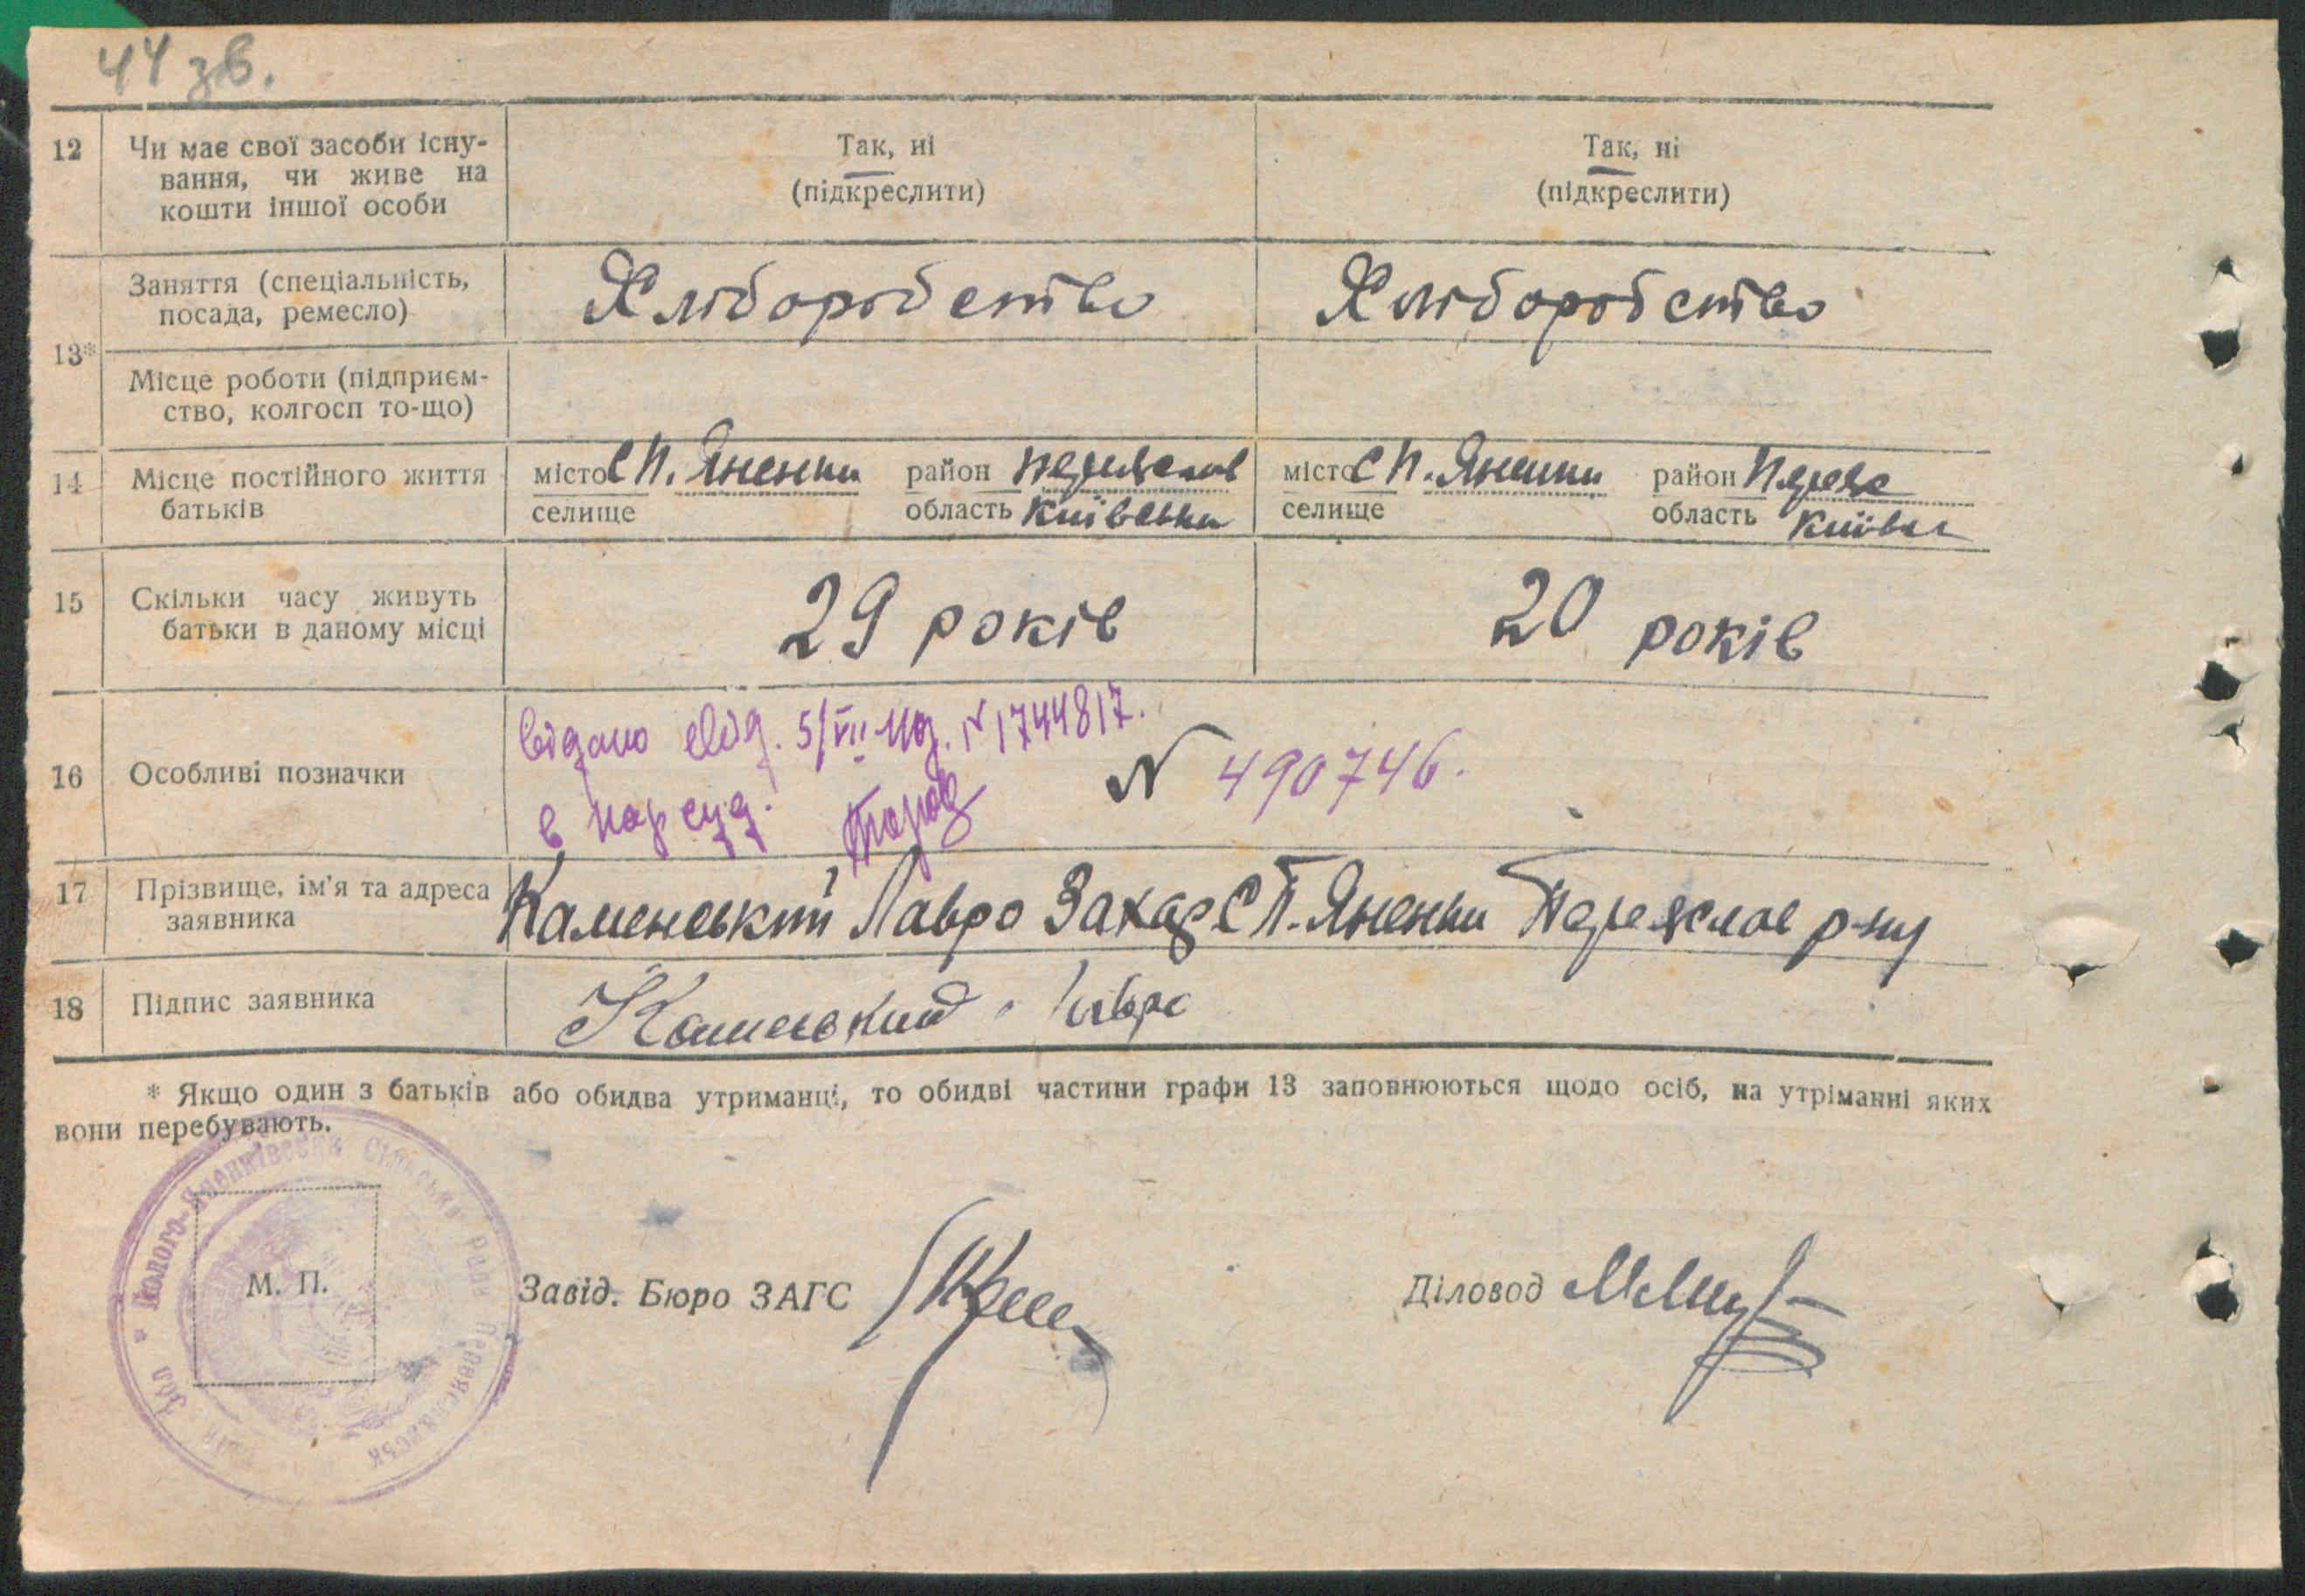 44 зв.
12 Чи має свої засоби існу-
вання, чи живе на
кошти іншої особи
Так, ні
(підкреслити)
Так, ні
(підкреслити)
13*
Заняття (спеціальність,
посада, ремесло)
Хліборобство
Хліборобство
Місце роботи (підприєм-
ство, колгосп то-що)
14 Місце постійного життя
батьків
місто С П. Яненки район Переяслав
селище область Київська
місто С П. Яненки район Переяс
селище область Київськ
15 Скільки часу живуть
батьки в даному місці
29 років
20 років
16 Особливі позначки
Видано свід. 5/VII 44 N 1744817.
в нар суд.
N 490746.
17 Прізвище, ім'я та адреса
заявника
Каменський Лавро Захар С П. Яненки Переяслав р-ну
18 Підпис заявника
Каменський Лавро
* Якщо один з батьків або обидва утриманці, то обидві частини графи 13 заповнюються щодо осіб, на утріманні яких
вони перебувають.
Полого-Яненківська Сільська Рада Переяславськ
М. П.
Завід. Бюро ЗАГС
Діловод